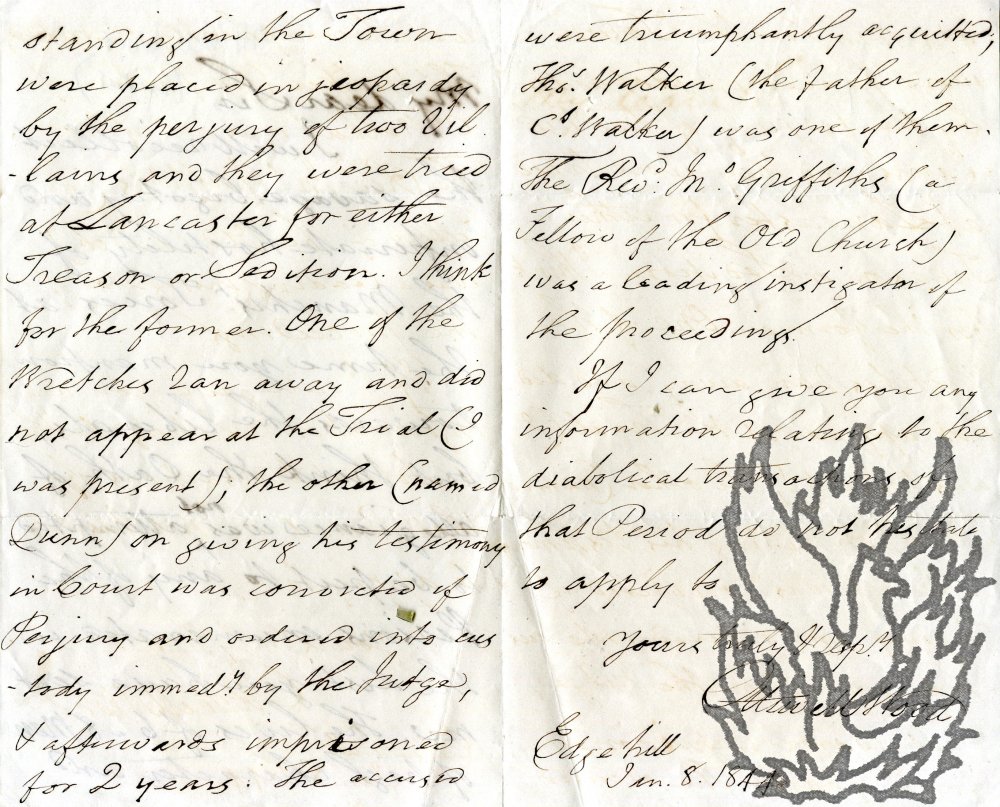 standing in the Town
were placed in jeopardy
by the perjury of two Vil
-lains and they were tried
at Lancaster for either
Treason or Sedition. I think
for the former. One of the
Wretches ran away and did
not appear at the Trial (I
was present); the other (named
Dunn) on giving his testimony
in Court was convicted of
Perjury and ordered into cus
-tody immedy by the Judge,
& afterwards imprisoned
for 2 years: The accused
were triumphantly acquitted;
Thos. Walker (the father of
Cs. Walker) was one of them.
The Revd. Jno. Griffiths (a
Fellow of the Old Church)
was a leading instigator of
the proceedings.
If I can give you any
information relating to the
diabolical transactions of
that Period do not hesitate
to apply to
Yours truly & respy
Edgehill
Jan. 8. 1844